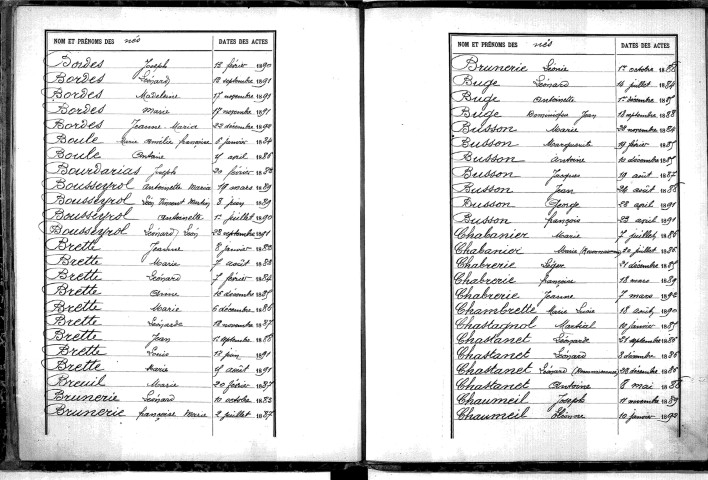 NOM ET PRÉNOMS DES nés DATES DES ACTES
Bordes Joseph 13 février 1890
Bordes Léonard 12 septembre 1891
Bordes Madeleine 17 novembre 1891
Bordes Marie 17 novembre 1891
Bordes Jeanne Maria 22 décembre 1892
Boule Anne Amélie françoise 8 janvier 1884
Boule Antoine 9 avril 1886
Bourdarias Joseph 20 février
Bousseyrol Antoinette Maria 19 mars 1889
Bousseyrol Léon Vincent 8 juin 1889
Bousseyrol Antoinette 1r juillet 1890
Bousseyrol Léonard Léon 28 septembre 1891
Brette Jeanne 8 janvier 1883
Brette Marie 7 août 1883
Brette Léonard 7 février 1884
Brette Anne 16 décembre 1885
Brette Marie 6 décembre 1886
Brette Léonarde 18 novembre 1887
Brette Jean septembre 1888
Brette Louis 12 juin 1891
Brette Marie 9 août 1891
Breuil Marie 20 février 1887
Brunerie Léonard 10 octobre 1883
Brunerie françoise Marie 2 juillet 1887
NOM ET PRÉNOMS DES nés DATES DES ACTES
Brunerie Léonie 1r octobre 1888
Buge Léonard 14 juillet 1884
Buge Antoinette 1r décembre 1885
Buge Dominique Jean 13 septembre 1888
Busson Marie 28 novembre 1884
Busson Marguerite 19 février 1885
Busson Antoine 10 décembre 1885
Busson Jacques 19 août 1887
Busson Jean 26 août 1888
Busson George 22 avril 1891
Busson françois 22 avril 1891
Chabanier Marie 7 juillet 1886
Chabanier Marie 20 juillet 1886
Chabrerie Léger 21 décembre 1885
Chabrerie françoise 18 mars 1889
Chabrerie Jeanne 7 mars 1892
Chambrette Marie Lucie 18 août 1890
Chastagnol Martial 10 janvier 1885
Chastanet Léonarde 21 septembre 1886
Chastanet Léonard 8 décembre 1886
Chastanet Léonard 28 décembre 1886
Chastanet Antoine 8 mai 1888
Chaumeil Joseph 11 novembre 1889
Chaumeil Eléonore 10 janvier 1892